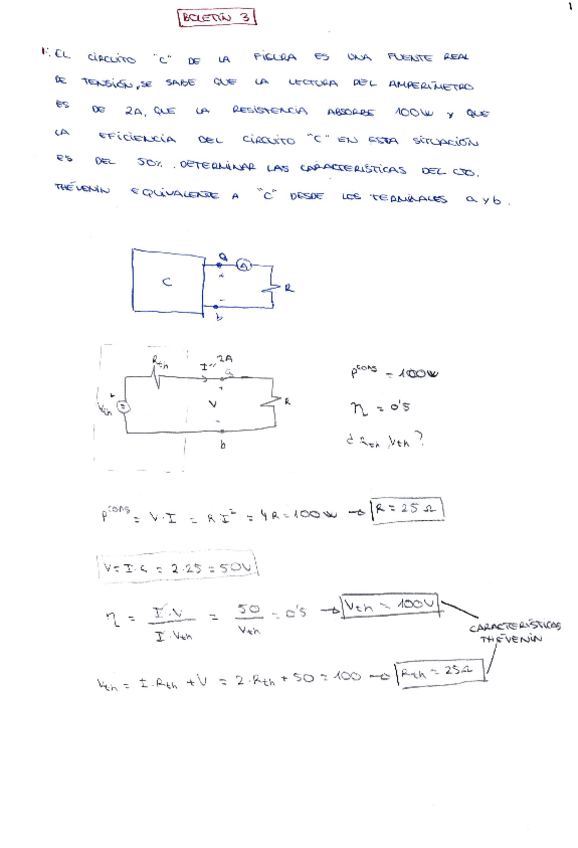 1
BOLETÍN 3
1. EL CIRCUITO "C" DE LA FIGURA ES UNA FUENTE REAL
DE TENSIÓN, SE SABE QUE LA LECTURA DEL AMPERÍMETRO
ES DE 2A, QUE LA RESISTENCIA ABSORBE 100W Y QUE
LA EFICIENCIA DEL CIRCUITO "C" EN ESTA SITUACIÓN
ES DEL 50%. DETERMINAR LAS CARACTERÍSTICAS DEL CTO.
THÉVENIN EQUIVALENTE A "C" DESDE LOS TERMINALES a y b.
C
a
A
+
-
b
R
Rth
I=2A
a
Vth
+
V
-
R
b
Pcons = 100W
η = 0'5
¿Rth, Vth?
Pcons = V·I = RI² = 4R = 100W → R = 25 Ω
= 2·25 = 50V
η = I·V / I·Vth = 50 / Vth = 0'5 → Vth = 100V
CARACTERÍSTICAS
THÉVENIN
Vth = I·Rth + V = 2·Rth + 50 = 100 → Rth = 25Ω